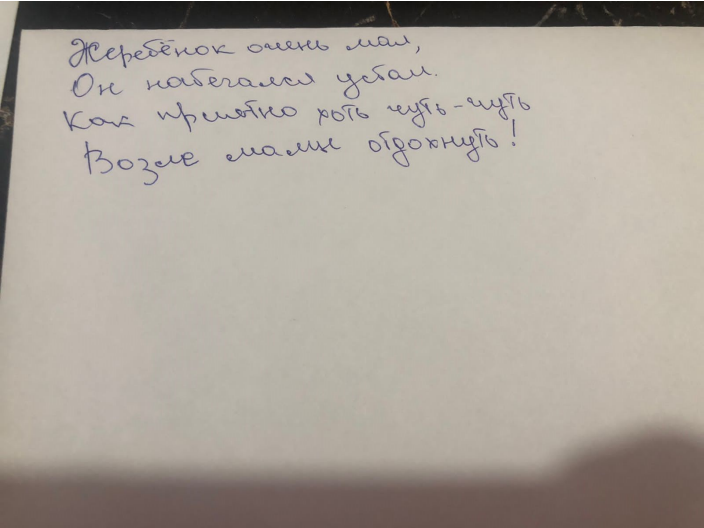 Жеребёнок очень мал,
Он набегался устал.
Как приятно хоть чуть-чуть
Возле мамы отдохнуть!